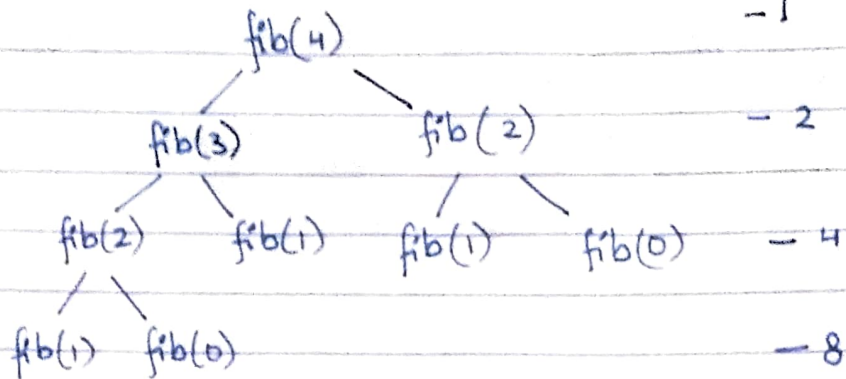 fib(4) - 1
fib(3) fib(2) - 2
fib(2) fib(1) fib(1) fib(0) - 4
fib(1) fib(0) - 8